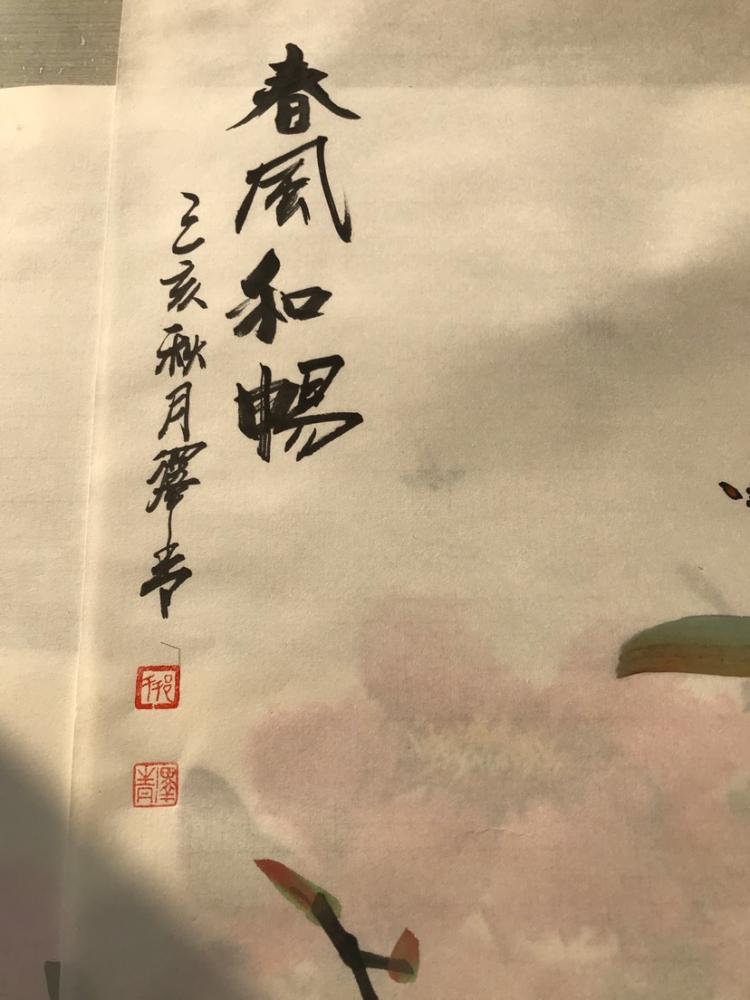 春風和暢
己亥秋月澤青
澤青